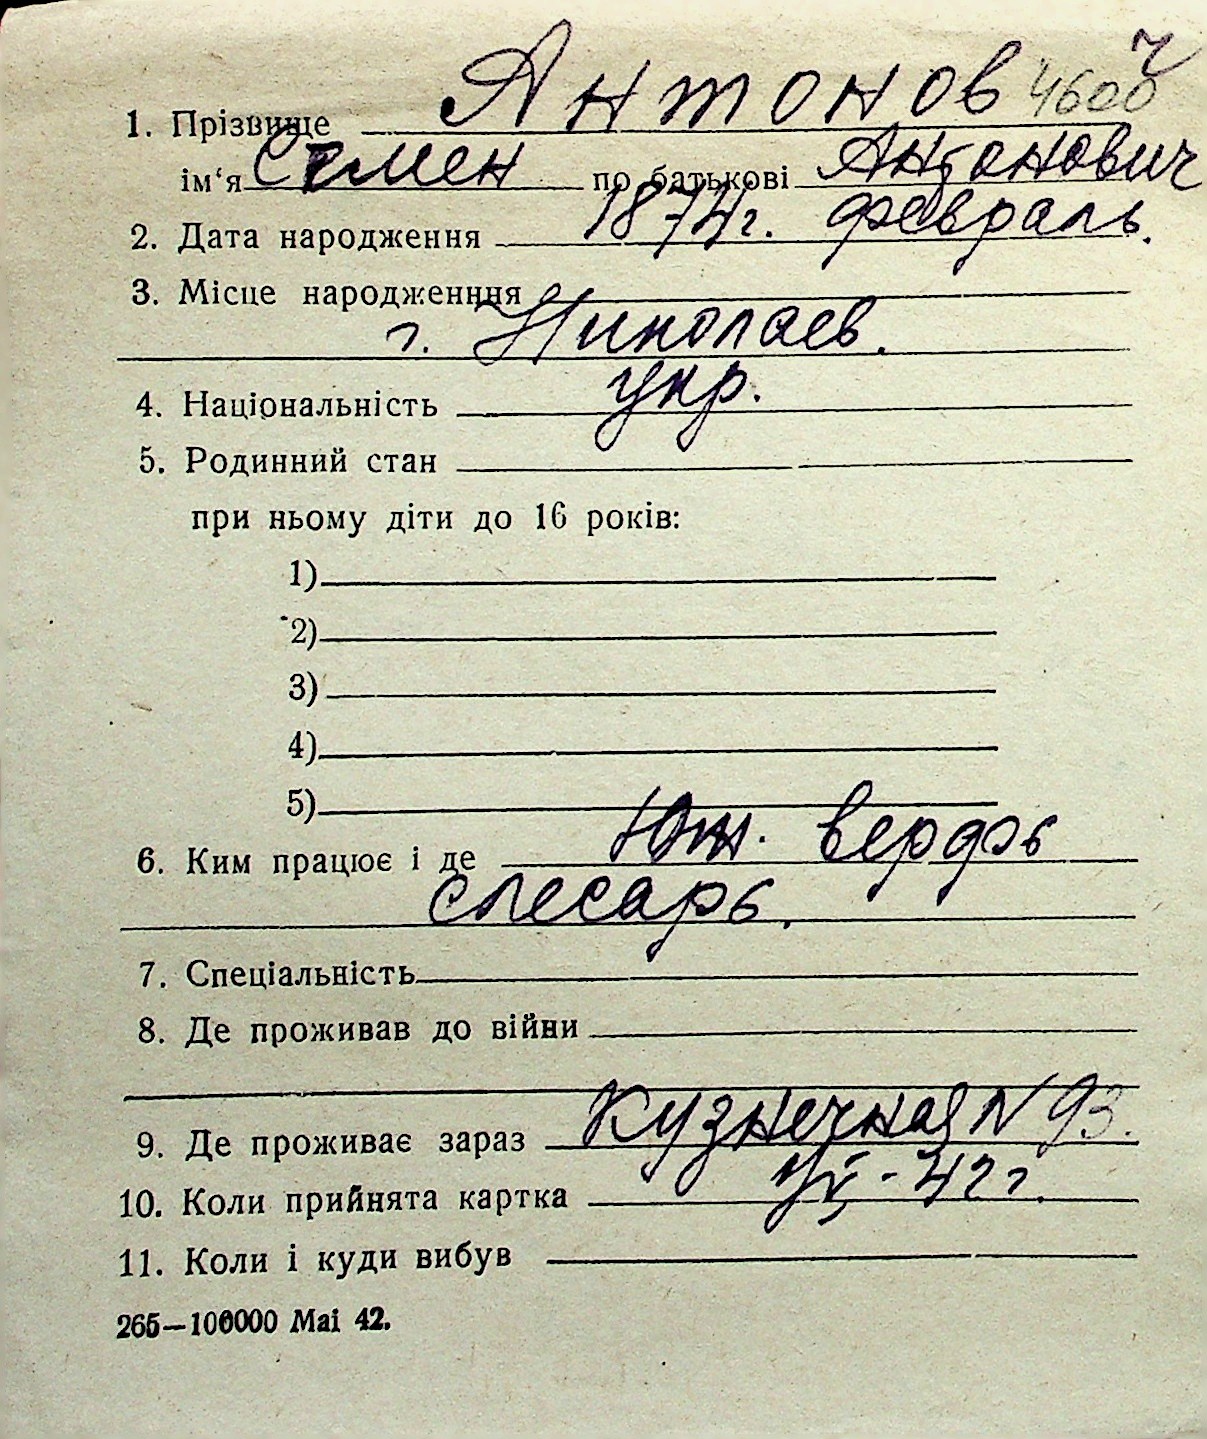 1. Прізвище Антонов 4600
ім‘я Семен по батькові Антонович
2. Дата народження 1874г. февраль.
3. Місце народженння
г. Николаев.
4. Національність укр.
5. Родинний стан
при ньому діти до 16 років:
1)
2)
3)
4)
5)
6. Ким працює і де Юж. верфь
слесарь.
7. Спеціальність
8. Де проживав до війни
9. Де проживає зараз Кузнечная N 93.
10. Коли прийнята картка 42 г.
11. Коли і куди вибув
265—100000 Маі 42.